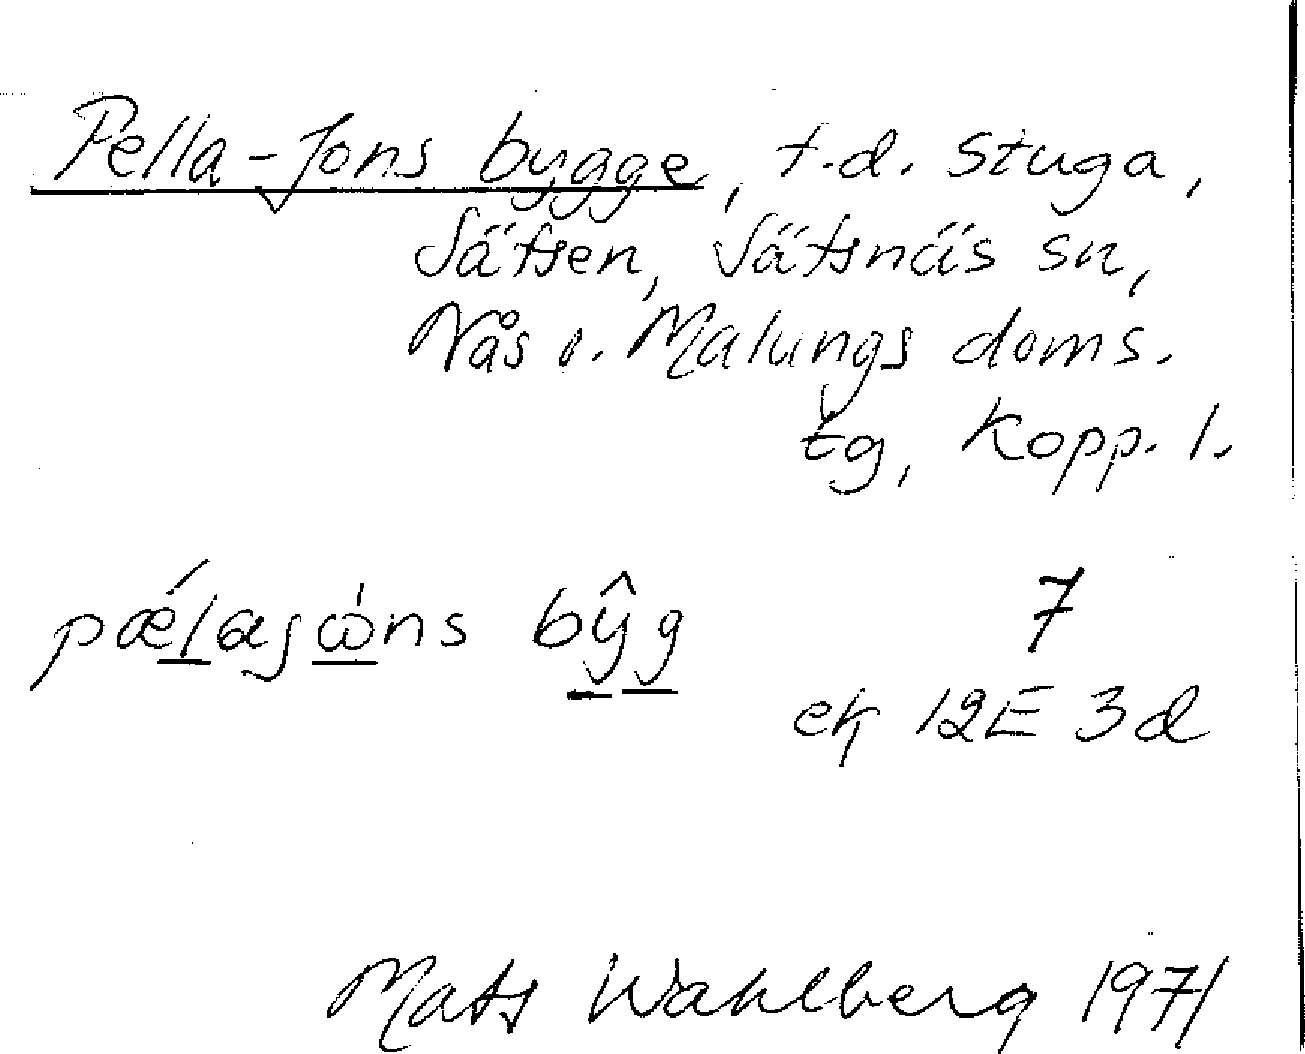 Pella-Jons bygge, f.d. stuga,
Sätsen, Sätsnäs sn,
Nås o. Malungs doms.
tg, Kopp. l.
pǽlajὼns bŷg 7
ek 12E 3d
Mats Wahlberg 1971